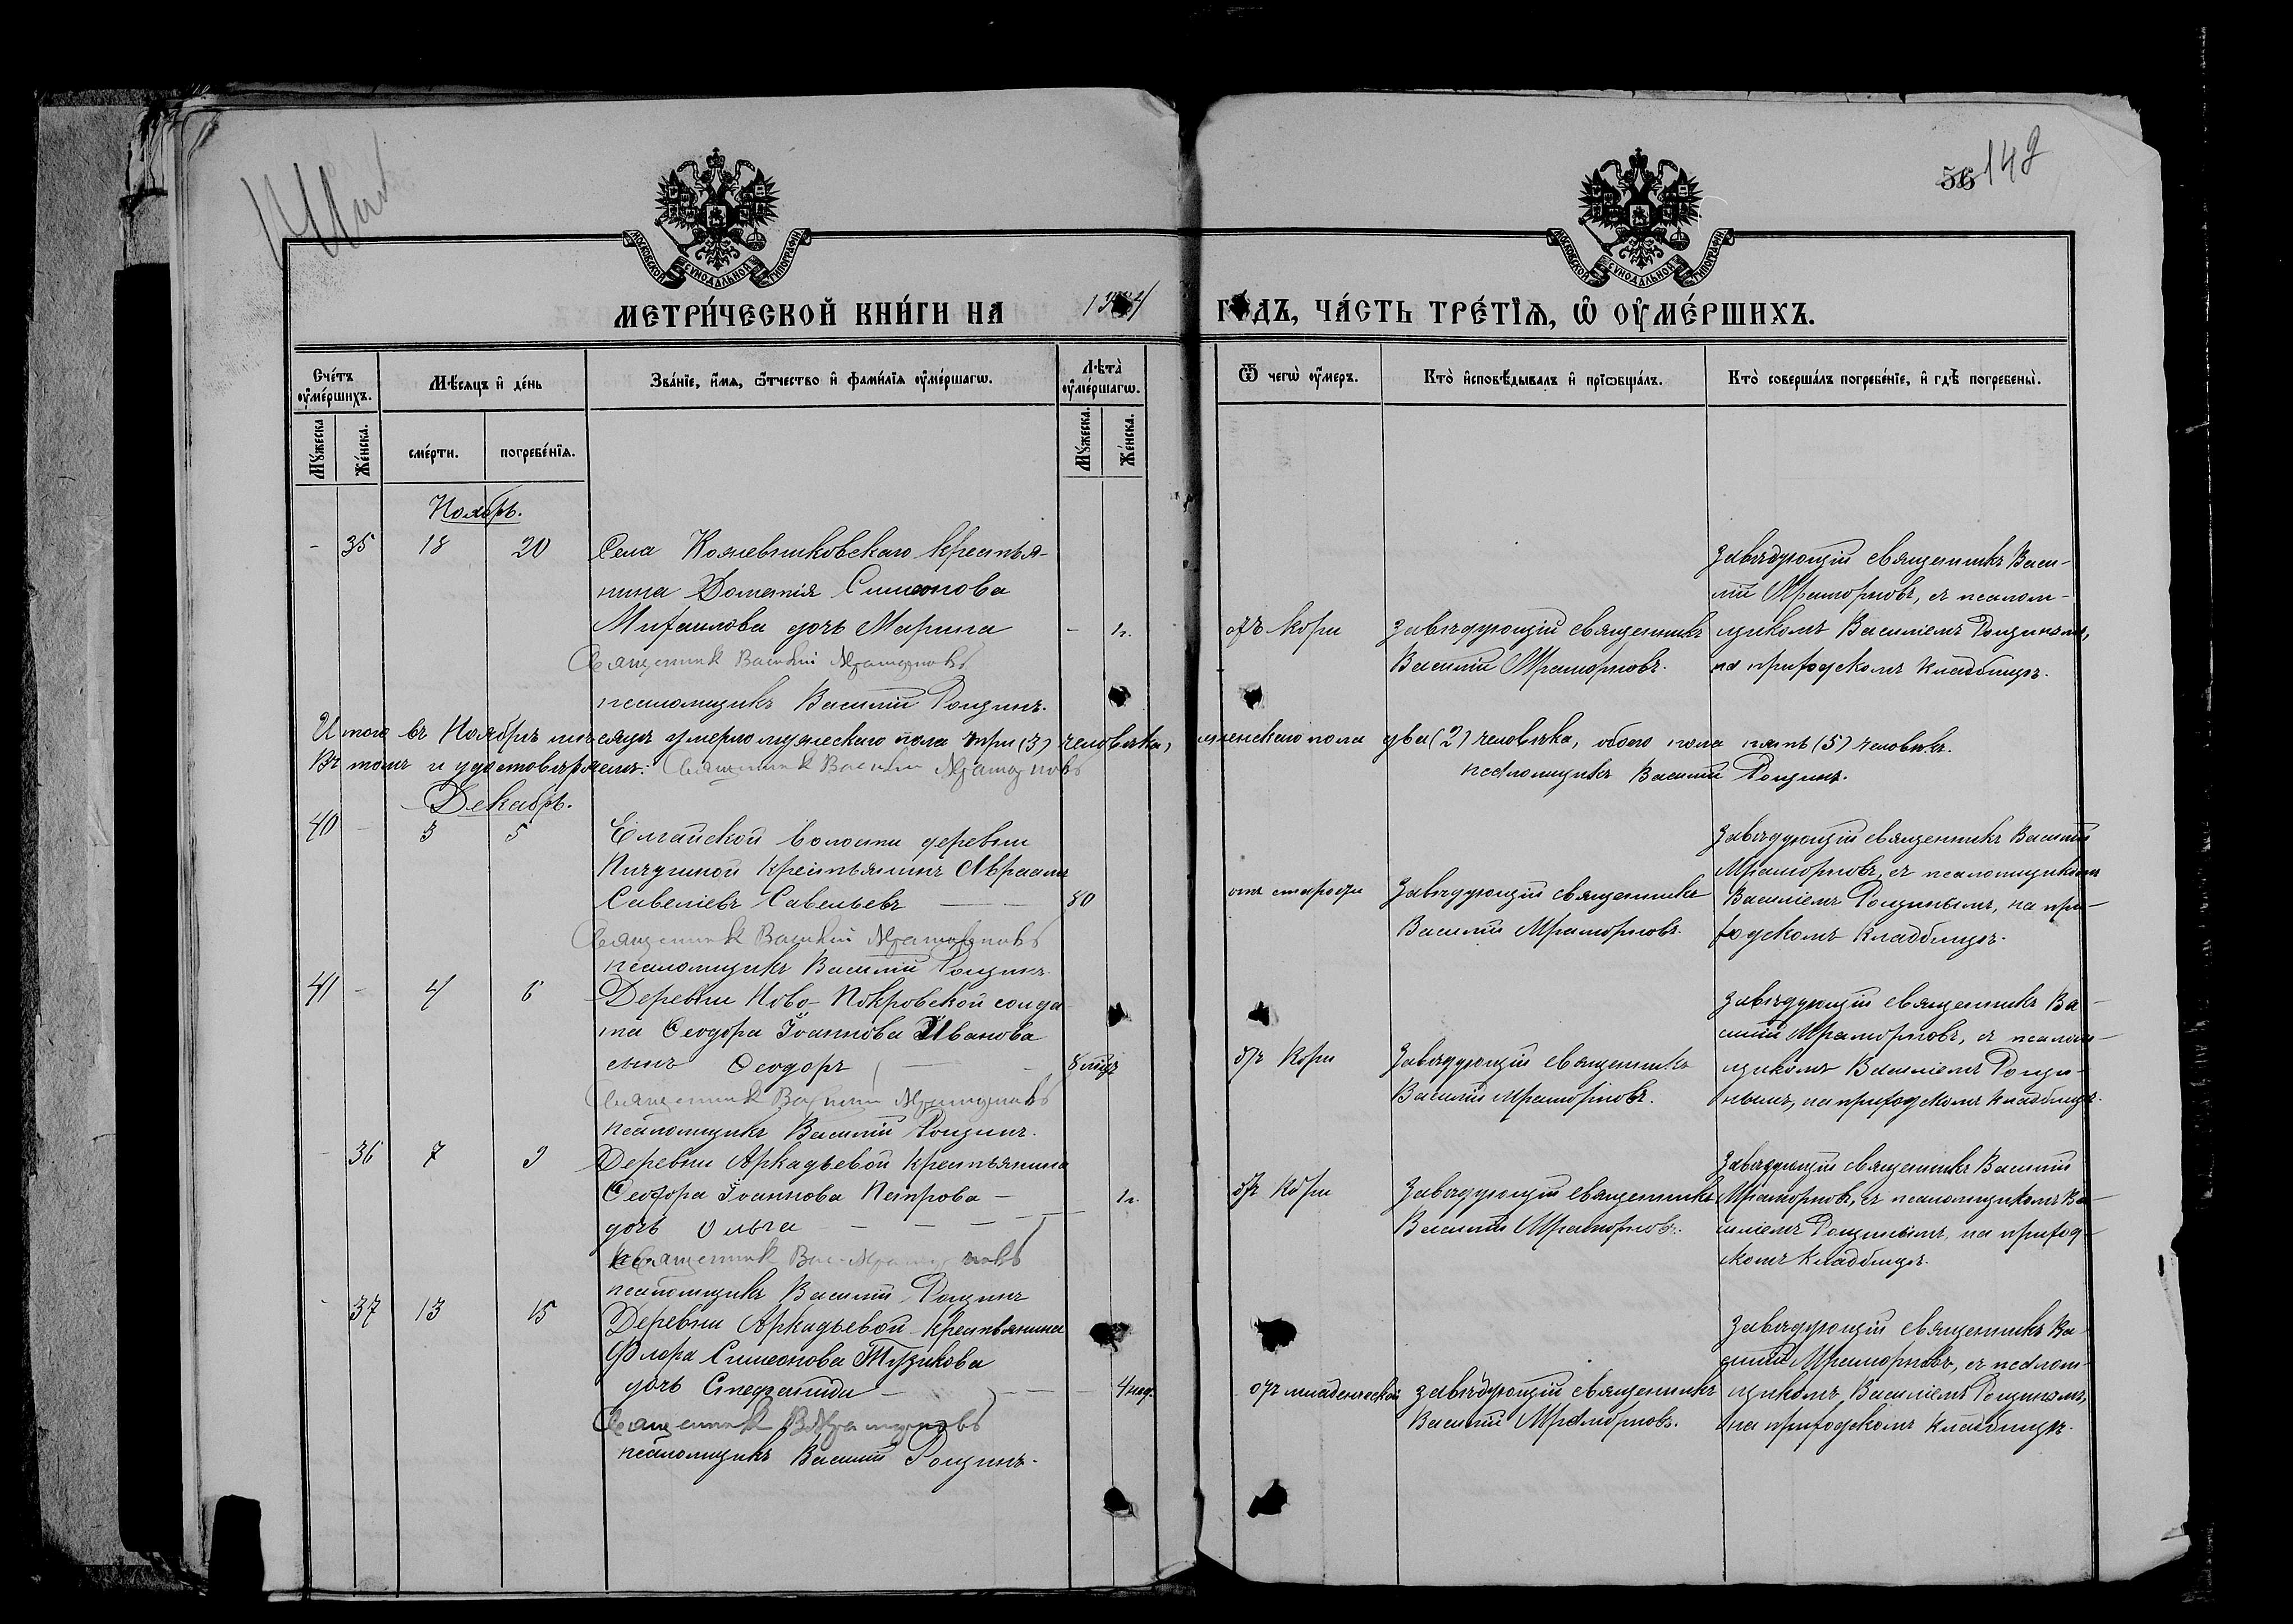 56 142
МОСКОВСКОЙ СУНОДАЛЬНОЙ ТИПОГРАФІИ
МОСКОВСКОЙ СУНОДАЛЬНОЙ ТИПОГРАФІИ
МЕТРИ́ЧЕСКОЙ КНИ́ГИ НА
ГОДЪ, ЧА́СТЬ ТРЕ́ТІѦ, Ѡ ОУ҆МЕ́РШИХЪ.
Сче́тъ оу҆ме́ршихъ.
Мѣ́сяцъ и҆ де́нь
Зва́нїе, и҆́мѧ, ѻ҆́тчество и҆ фами́лїѧ оу҆ме́ршагѡ.
Лѣта̀ оу҆ме́ршагѡ.
Ѿ чегѡ̀ оу҆́меръ.
Кто̀ и҆сповѣ́дывалъ и҆ прїѡбща́лъ.
Кто̀ соверша́лъ погребе́нїе, и҆ гдѣ̀ погребены̀.
Мꙋ́жеска
Же́нска.
сме́рти.
погребе́нїѧ.
Мꙋ́жеска.
Же́нска.
Ноябрь.
- 35 18 20
Села Кожевниковскаго крестья-
нина Дометія Симеонова
Михаилова дочь Марина
Священник Василій Мраморновъ
псаломщикъ Василій Рощинъ.
отъ кори
Завѣдующій священникъ
Василій Мраморновъ.
Завѣдующій священникъ Васи-
лій Мраморновъ, съ псалом-
щикомъ Василіемъ Рощинымъ,
на приходскомъ кладбищѣ.
Итого въ Ноябрѣ мѣсяцѣ умерло мужескаго пола три (3) человѣка, женскаго пола два (2) человѣка, обоего пола пять (5) человѣкъ.
Въ томъ и удостовѣряемъ: Священник Василій Мраморновъ
псаломщикъ Василій Рощинъ.
Декабрь.
40 - 3 5
Елгайской волости деревни
Пичугиной крестьянинъ Авраамъ
Савеліевъ Савельевъ
80
Священник Василій Мраморновъ
псаломщикъ Василій Рощинъ
отъ старости
Завѣдующій священникъ
Василій Мраморновъ.
Завѣдующій священникъ Василій
Мраморновъ, съ псаломщикомъ
Василіемъ Рощинымъ, на при-
ходскомъ кладбищѣ.
41 - 4 6
Деревни Ново-Покровской солда
та Ѳеодора Іоаннова Иванова
сынъ Ѳеодоръ
Священник Василій Мраморновъ
псаломщикъ Василій Рощинъ.
отъ кори
Завѣдующій священникъ
Василій Мраморновъ.
Завѣдующій священникъ Ва-
силій Мраморновъ, съ псалом-
щикомъ Василіемъ Рощи-
нымъ, на приходскомъ кладбищѣ.
- 36 7 9
Деревни Аркадьевой крестьянина
Ѳеодора Іоаннова Петрова -
дочь Ольга
Священник Вас. Мраморновъ
псаломщикъ Василій Рощинъ
отъ кори
Завѣдующій священникъ
Василій Мраморновъ.
Завѣдующій священникъ Василій
Мраморновъ, съ псаломщикомъ Ва-
силіемъ Рощинымъ, на приход-
скомъ кладбищѣ.
- 37 13 15
Деревни Аркадьевой крестьянина
Флора Симеонова Тузикова
дочь
4 нед.
Священник В Мраморновъ
псаломщикъ Василій Рощинъ.
отъ младенческой
Завѣдующій священникъ
Василій Мраморновъ.
Завѣдующій священникъ Ва-
силій Мраморновъ, съ псалом-
щикомъ Василіемъ Рощинымъ,
на приходскомъ кладбищѣ.